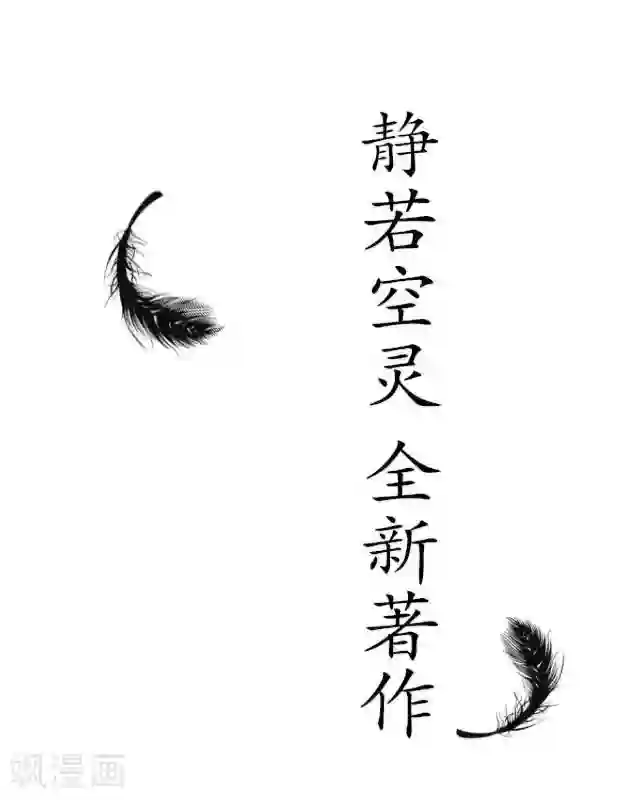 静若空灵 全新著作
飒漫画